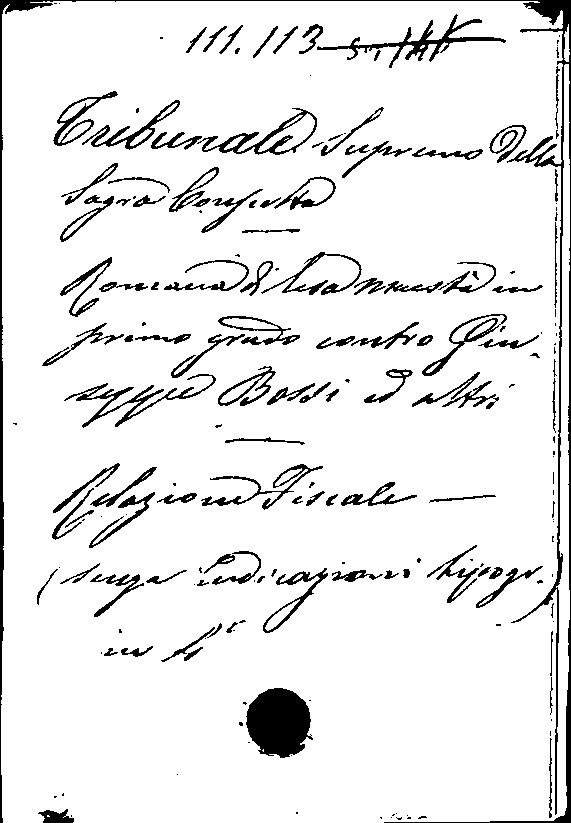 111.113
Tribunale Supremo della
Sagra Consulta
Romana di lesa maestà in
primo grado contro Giu-
seppe Bossi ed altri
Relazione Fiscale —
(senza indicazioni tipogr.)
in 4°